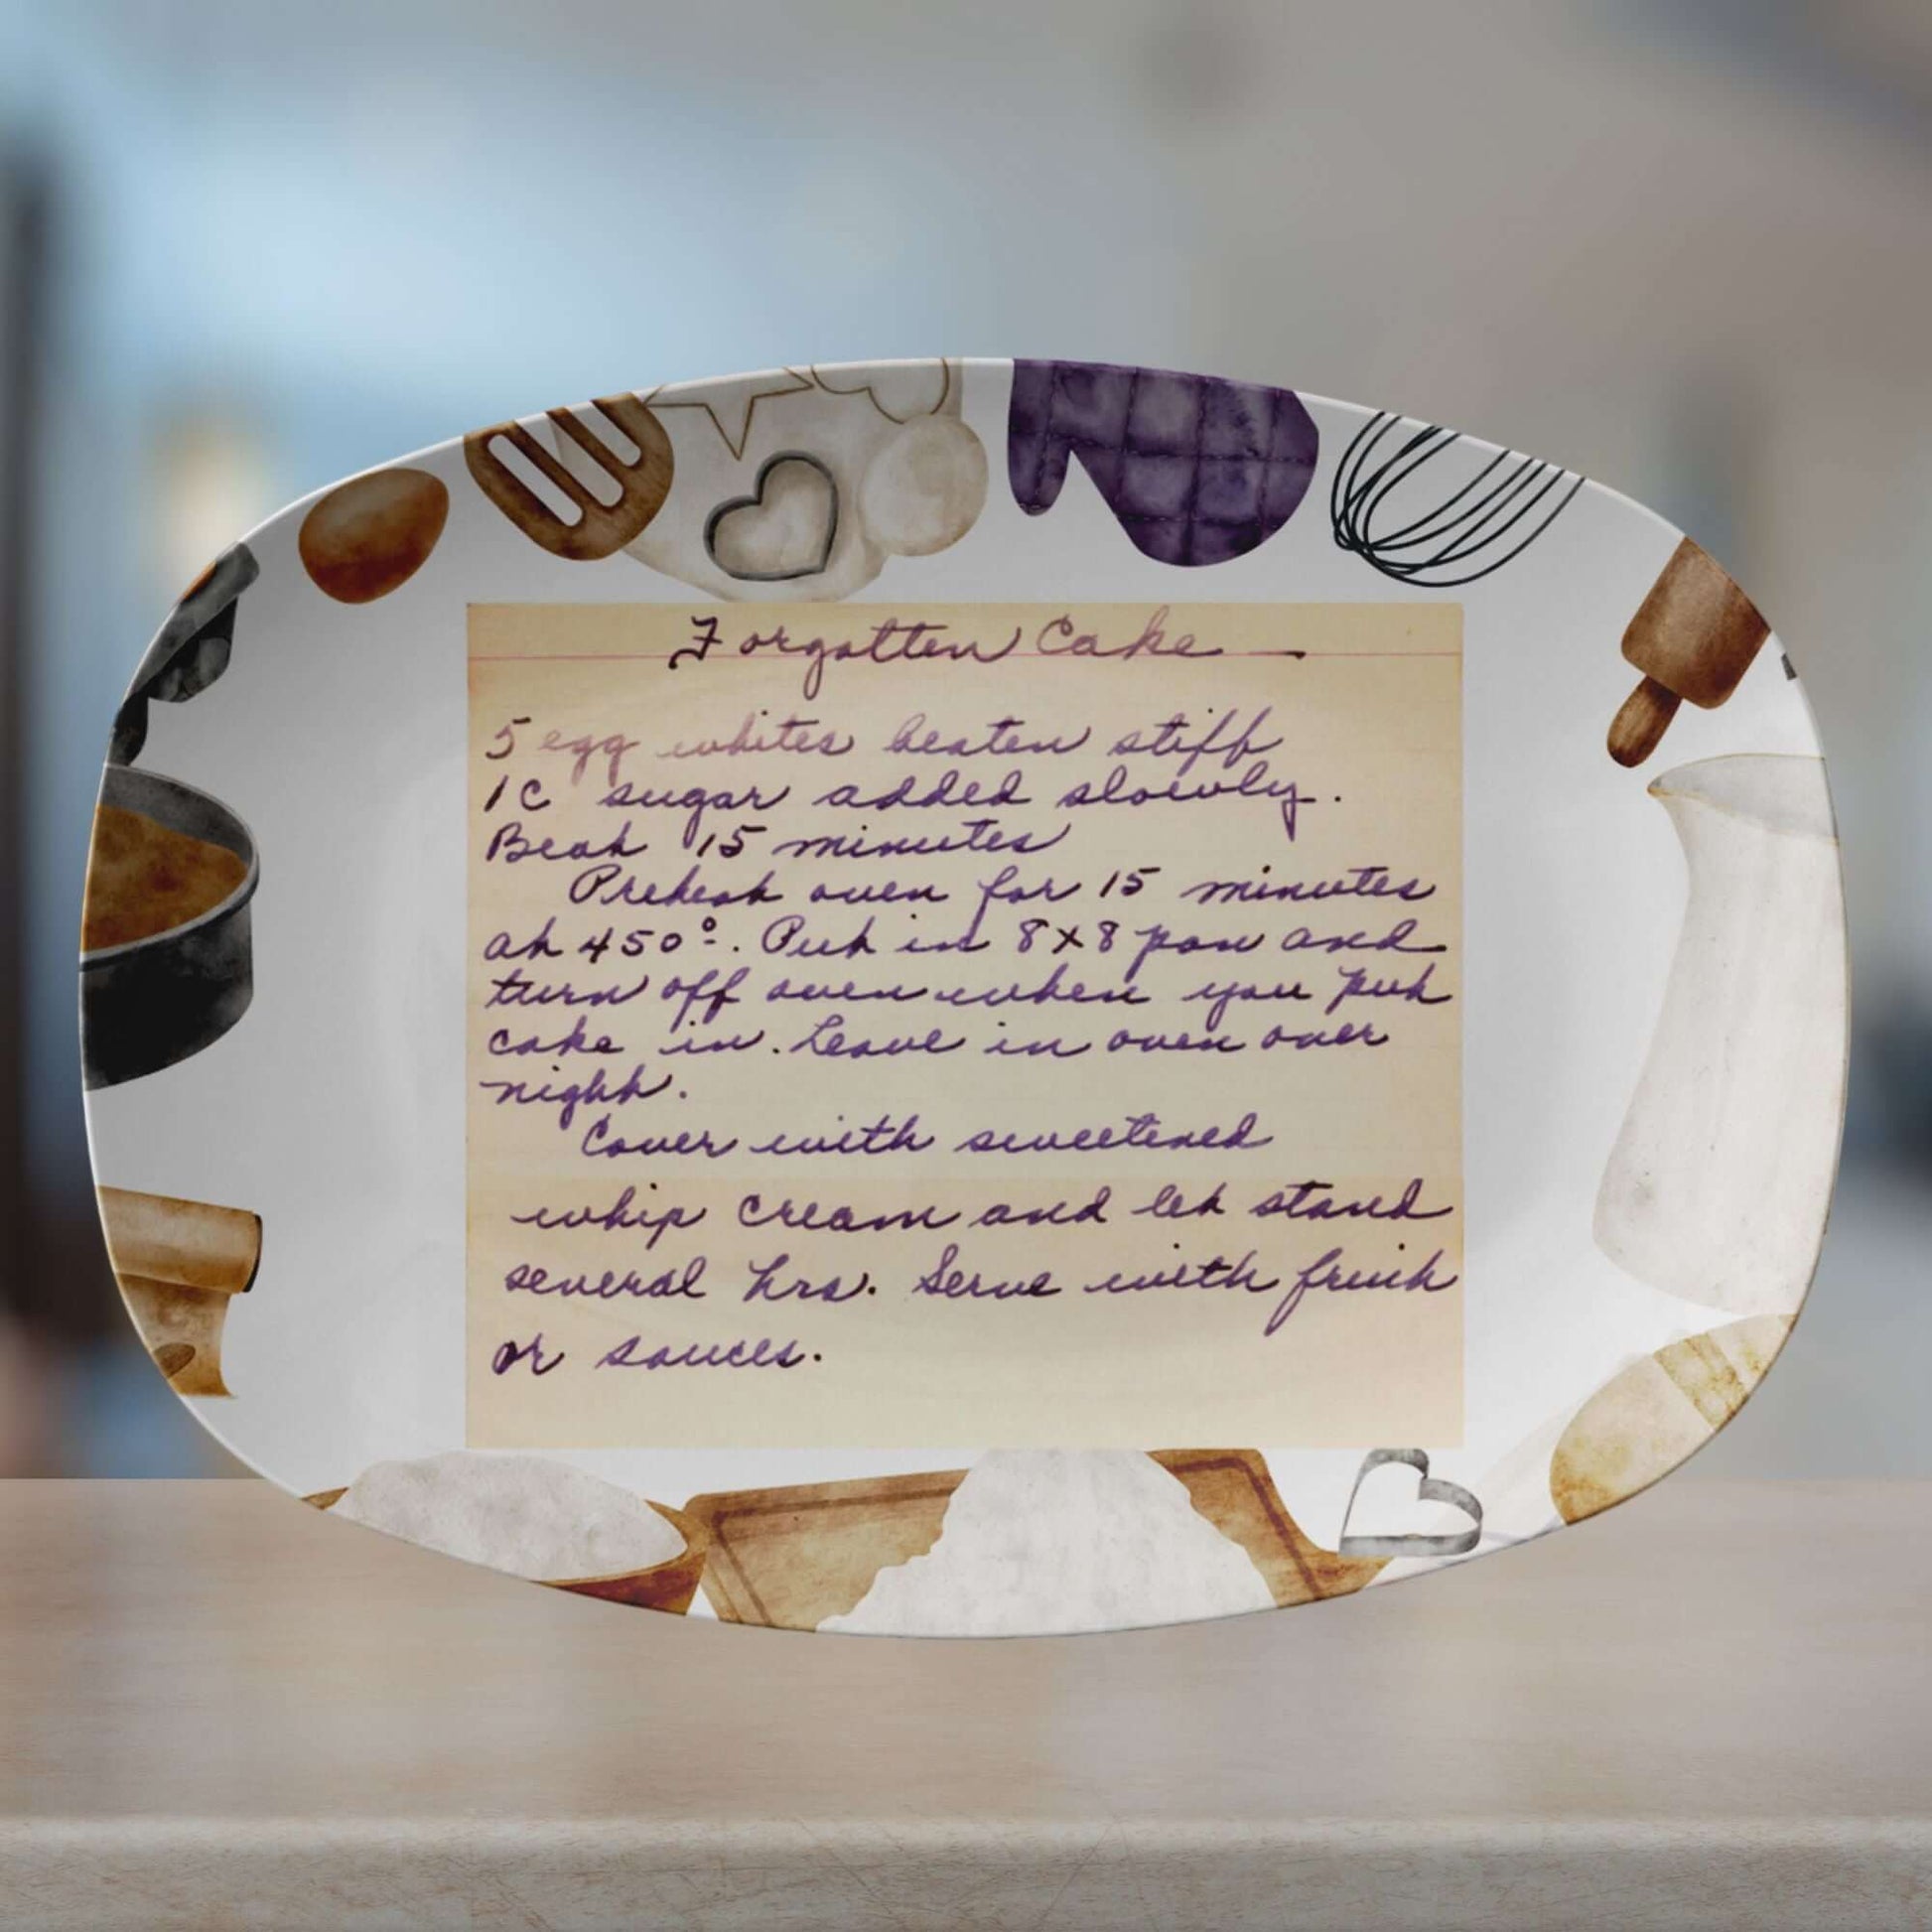 Forgotten Cake —
5 egg whites beaten stiff
1 C sugar added slowly.
Beat 15 minutes
Preheat oven for 15 minutes
at 450°. Put in 8x8 pan and
turn off oven when you put
cake in. Leave in oven over
night.
Cover with sweetened
whip cream and let stand
several hrs. Serve with fruit
or sauces.